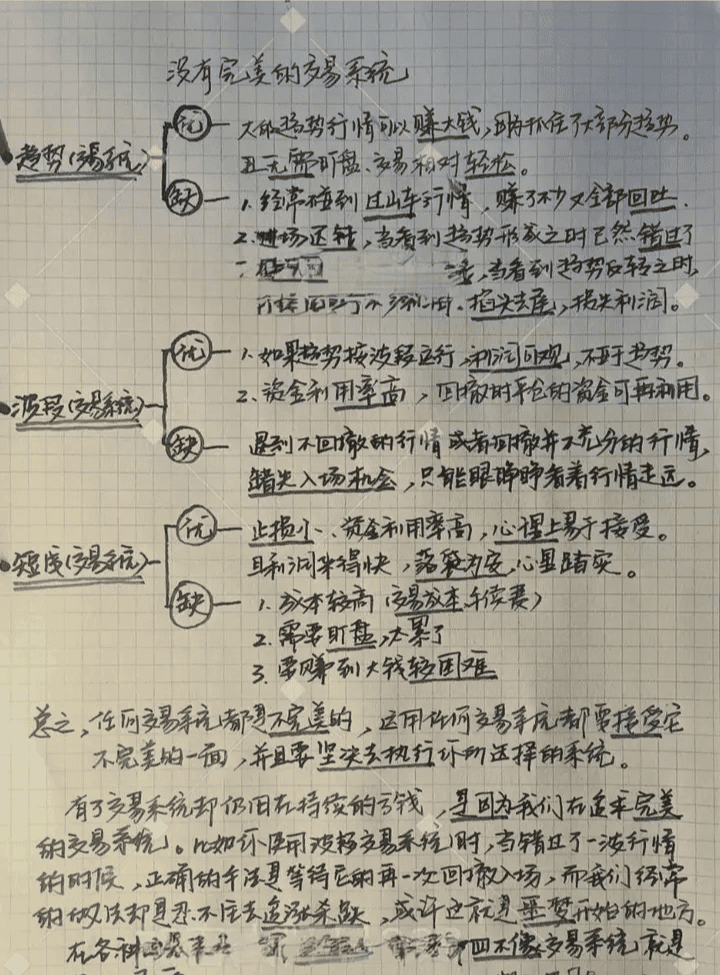 没有完美的交易系统
趋势(交易系统)
优 大级趋势行情可以赚大钱,因为抓住了大部分趋势。
且无需盯盘、交易相对轻松。
缺 1. 经常碰到过山车行情,赚了不少又全部回吐.
2. 进场迟钝,当看到趋势形成之时已然错过了
当看到趋势反转之时,
掐头去尾,损失利润。
波段(交易系统)
优 1. 如果趋势按波段运行,利润可观,不亚于趋势。
2、资金利用率高,回撤时平仓的资金可再利用。
缺 遇到不回撤的行情或者回撤并不充分的行情,
错失入场机会,只能眼睁睁看着行情走远。
短线(交易系统)
优 止损小、资金利用率高,心理上易于接受。
且利润来得快,落袋为安,心里踏实。
缺 1. 成本较高(交易成本、手续费)
2. 需要盯盘,太累了
3. 要赚到大钱较困难
总之,任何交易系统都是不完美的,运用任何交易系统都要接受它
不完美的一面,并且要坚决去执行你所选择的系统。
有了交易系统却仍旧在持续的亏钱,是因为我们在追求完美
的交易系统。比如你使用波段交易系统时,当错过了一波行情
的时候,正确的手法是等待它的再一次回撤入场,而我们经常
的做法却是忍不住去追涨杀跌,或许这就是噩梦开始的地方。
在各种 四不像交易系统就是